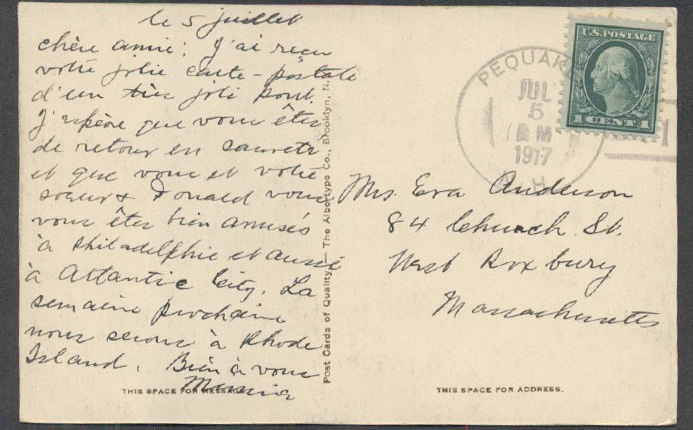 le 5 juillet
chère amie: J'ai reçu
votre jolie carte-postale
d'un très joli pont.
J'espère que vous êtes
de retour en sureté
et que vous et votre
soeur & Donald vous
vous êtes bien amusés
à Philadelphie et aussi
à Atlantic City. La
semaine prochaine
nous serons à Rhode
Island. Bien à vous
THIS SPACE FOR MESSAGE
Post Cards of Quality. — The Albertype Co., Brooklyn, N.Y.
U.S. POSTAGE
1 CENT 1
JUL
5
AM
1917
N.H.
Mrs. Eva Anderson
84 Church St.
West Roxbury
Massachusetts
THIS SPACE FOR ADDRESS.